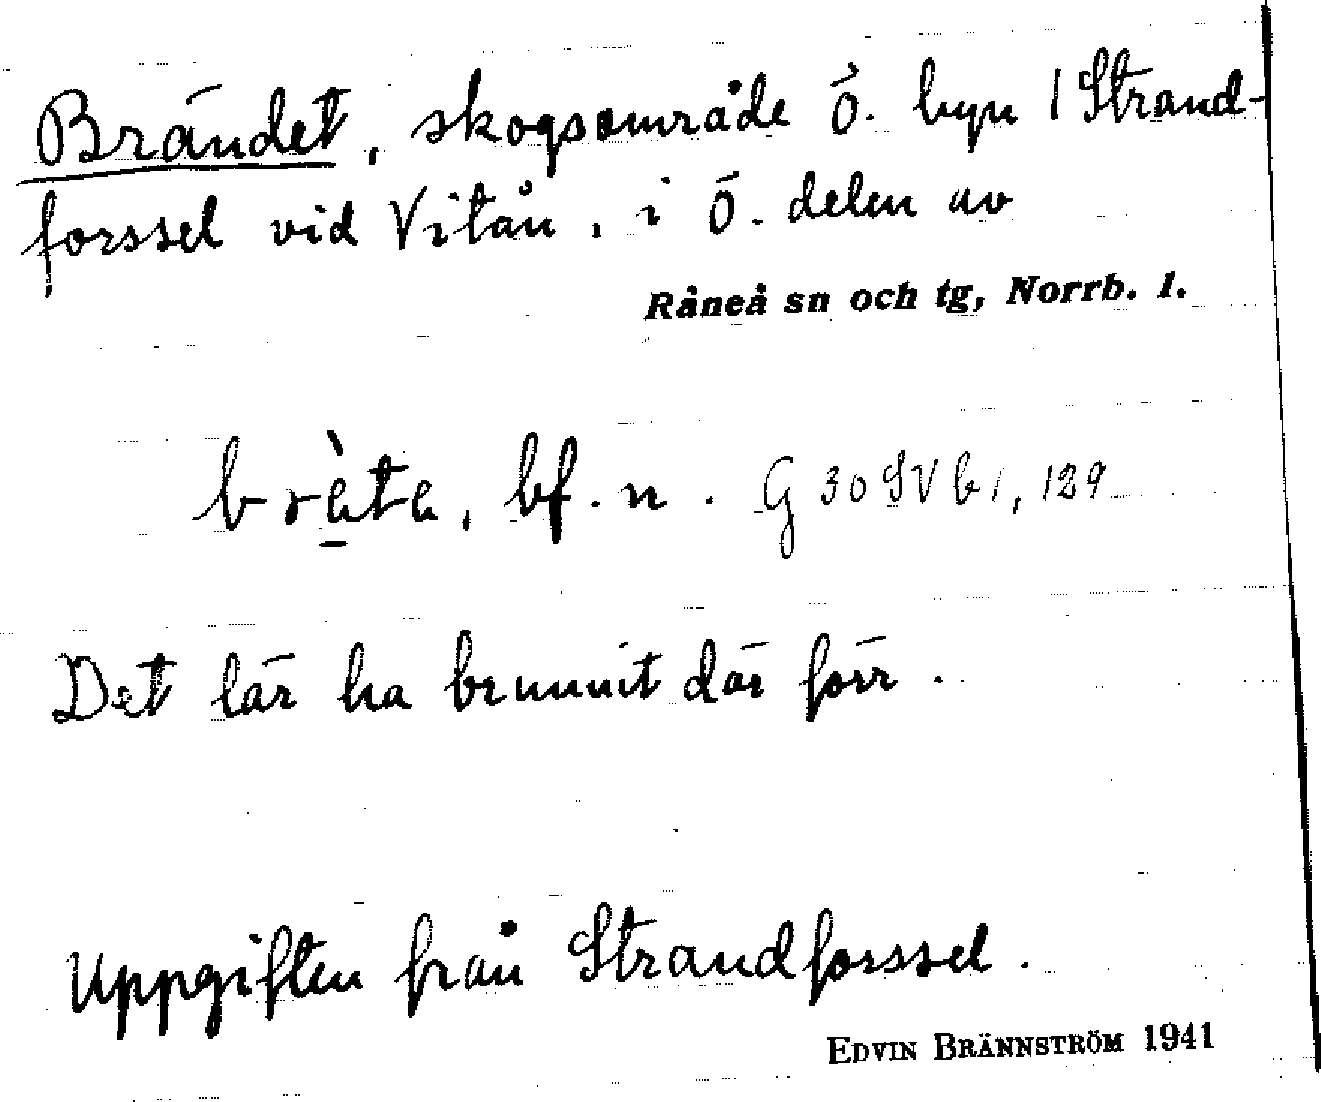 Brändet, skogsområde ö. byn 1 Strand-
forssel vid Vitån, i ö. delen av
Råneå sn och tg, Norrb. l.
brè̱te, bf. n. G 30 SV b1, 129
Det lär ha brunnit där förr.
Uppgiften från Strandforssel.
EDVIN BRÄNNSTRÖM 1941